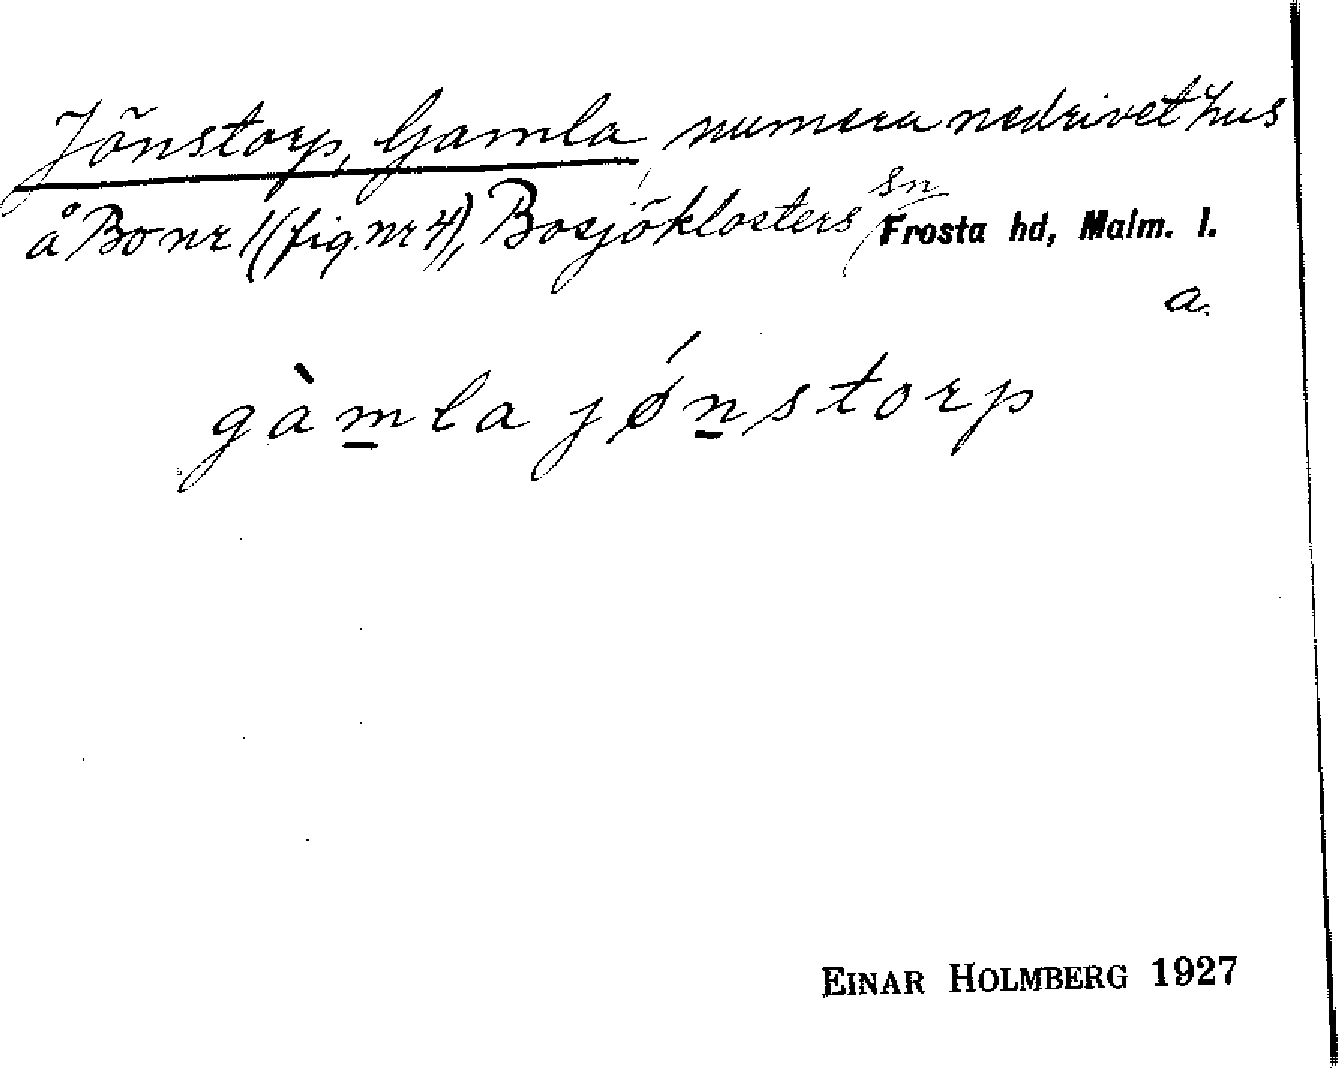 Jönstorp, Gamla, numera nedrivet hus
å Bo nr 1 (fig. nr 4), Bosjöklosters sn Frosta hd, Malm. l.
a.
gàm̲la jǿn̲storp
EINAR HOLMBERG 1927